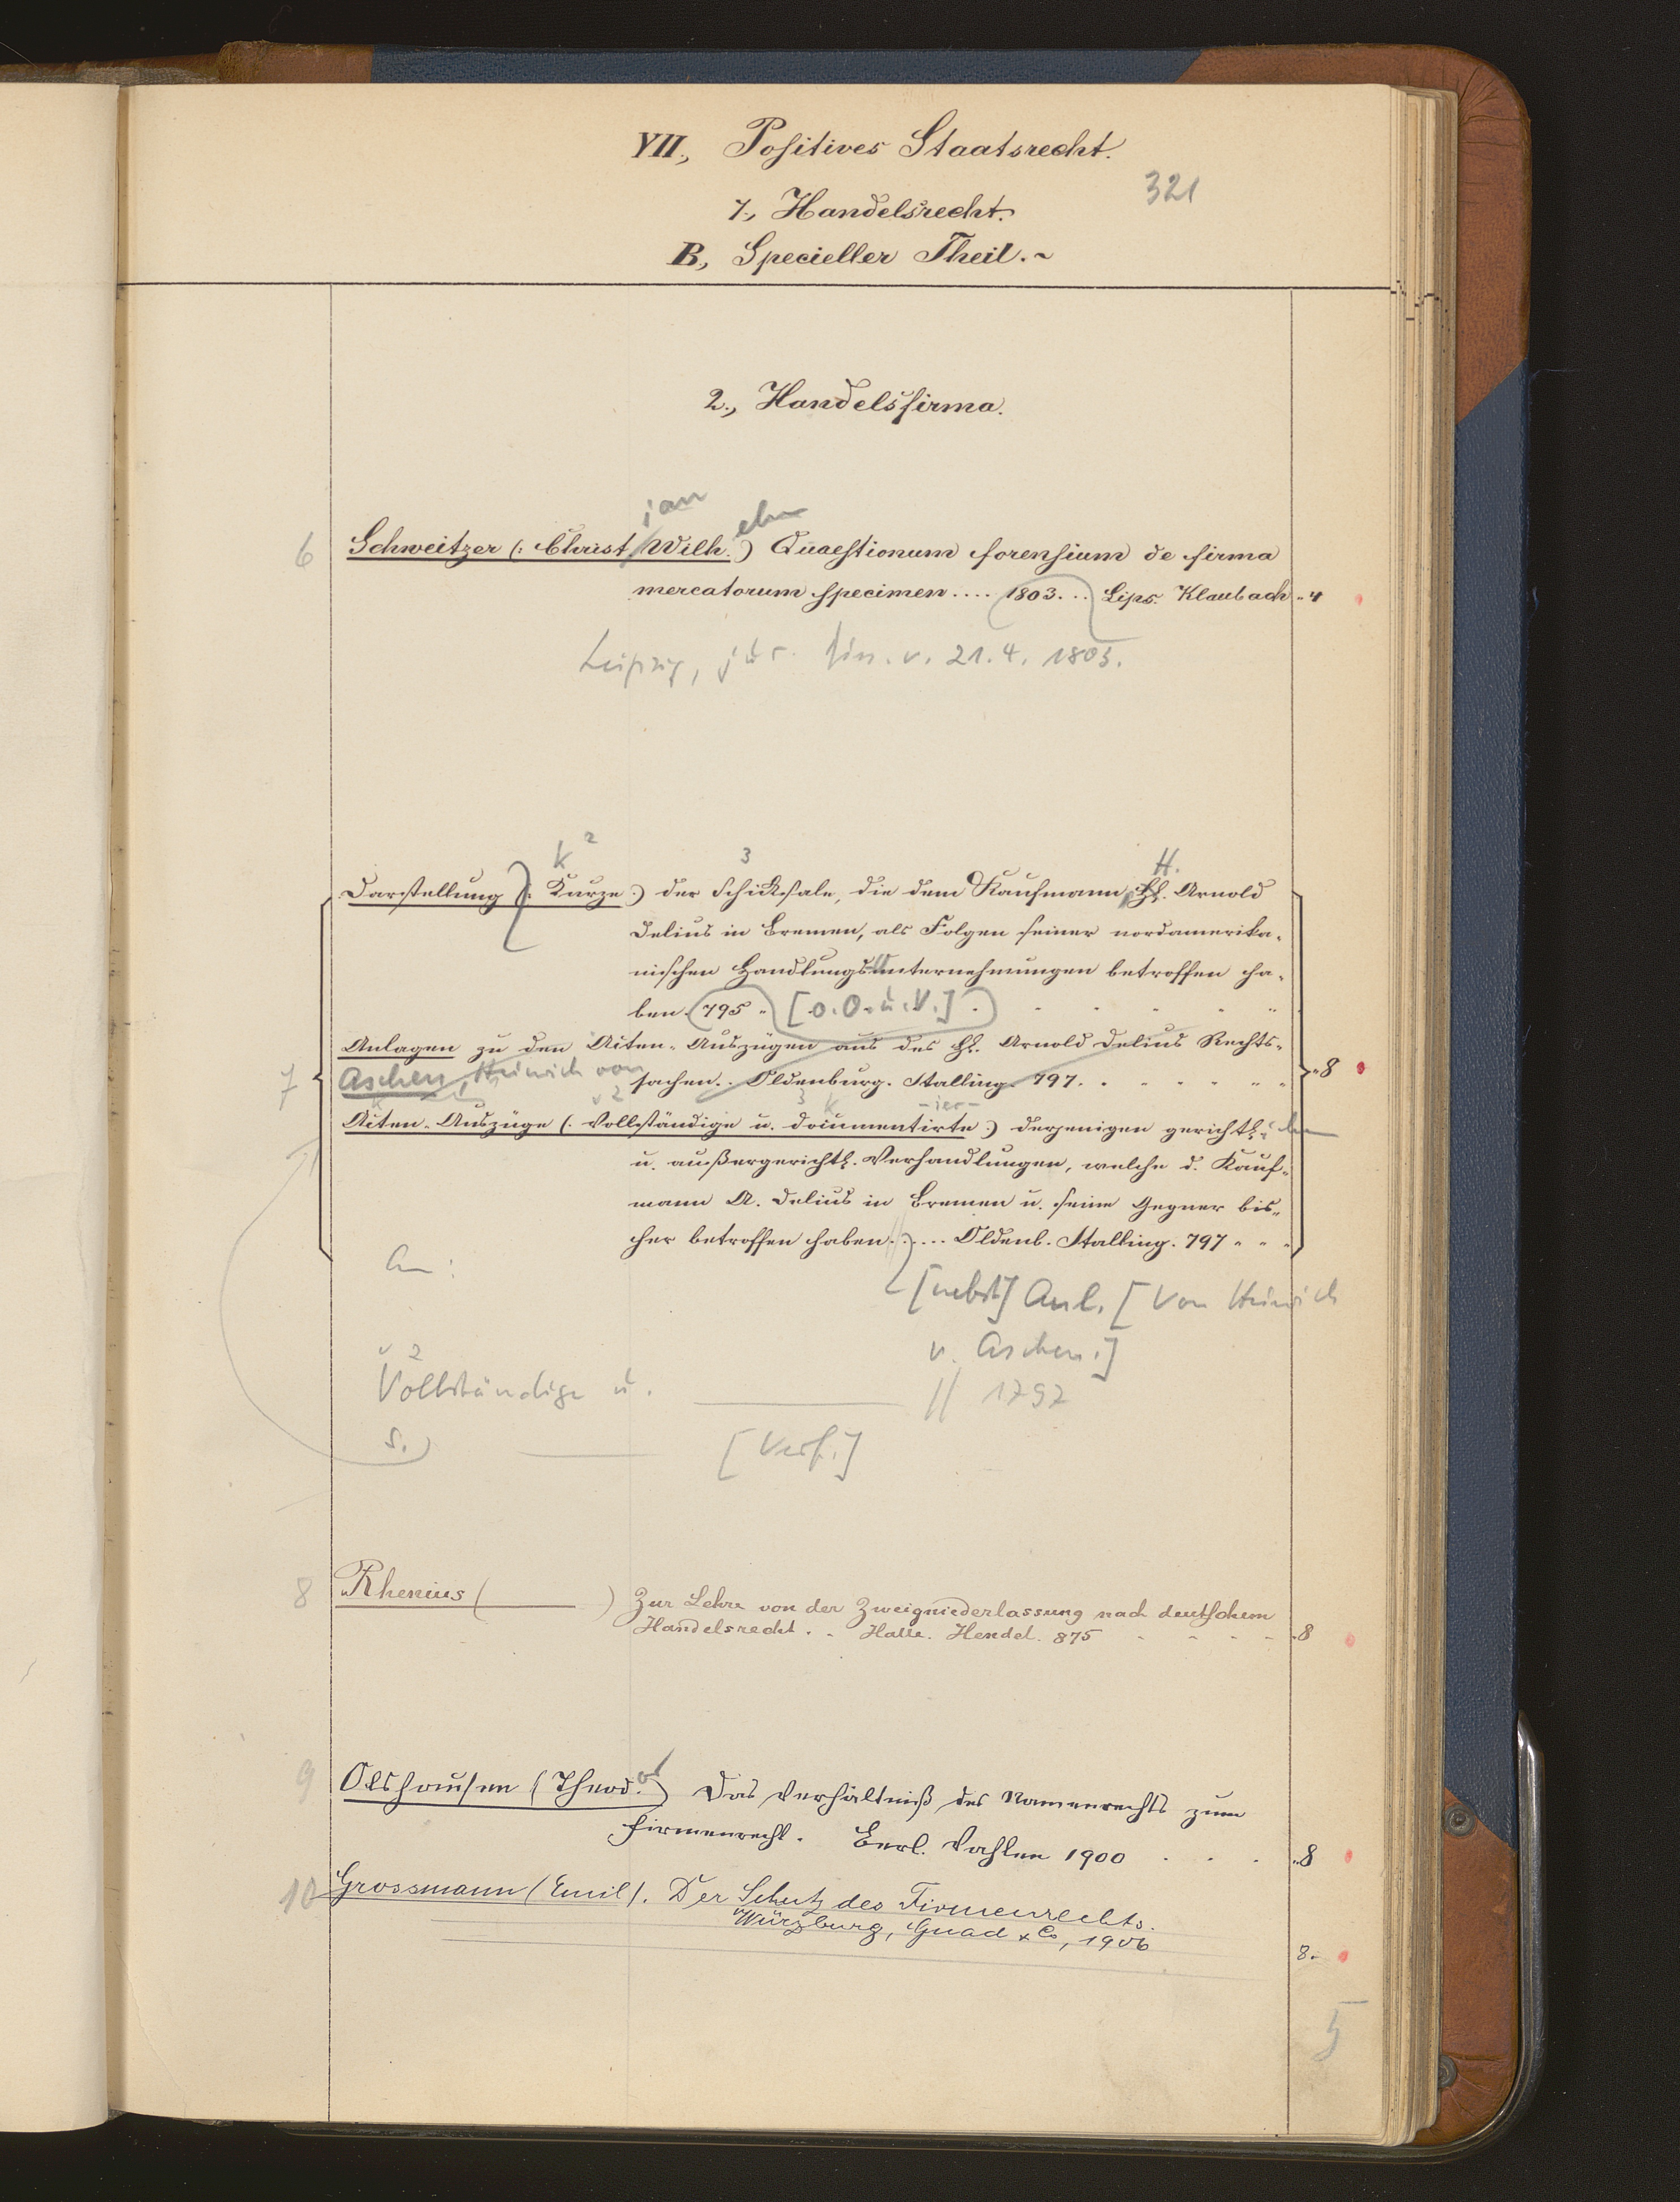 VII., Positives Staatsrecht.
321
7., Handelsrecht.
B., Specieller Theil.~
2., Handelsfirma.
ian elm
6 Schweitzer (: Christ. Wilh. :) Quaestionum forensium de firma
mercatorum specimen .... 1803... Lips. Klaubach „ 4
Leipzig, jur. Diss. v. 21.4. 1803.
k 2 3 H.
Darstellung (: Kurze :) der Schicksale, die dem Kaufmann H. Arnold
Delius in Bremen, als Folgen seiner nordamerika-
nischen Handlungsunternehmungen betroffen ha-
ben. 795 „ [o. O. u. V.]
Anlagen zu den Acten-Auszügen aus des H. Arnold Delius Rechts-
7 Aschen, Heinrich von sachen.. Oldenburg. Stalling. 797. „ 8
k v 2 3 k -ier-
Acten-Auszüge (: Vollständige u. documentirte :) derjenigen gerichtl.
u. außergerichtl. Verhandlungen, welche d. Kauf-
mann A. Delius in Bremen u. seine Gegner bis-
her betroffen haben...... Oldenb. Stalling. 797 „ „ „
An:
[nebst] Anl. [Von Heinrich
v. Aschen.]
v 2
Vollständige u. // 1797
s. [Verf.]
8 Rhenius ( ) Zur Lehre von der Zweigniederlassung nach deutschem
Handelsrecht. . Halle. Hendel. 875 - - - - 8
9 Olshausen (Theod. or) Das Verhältniß des Namenrechts zum
Firmenrecht. Berl. Vahlen 1900 . . . „8
10 Grossmann (Emil). Der Schutz des Firmenrechts.
Würzburg, Gnad & Co, 1906
8.
5